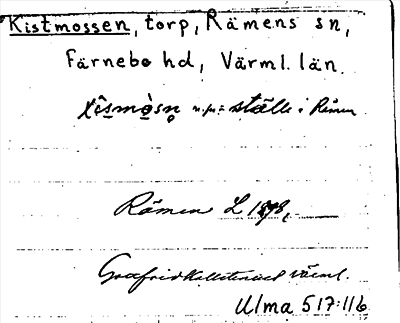 Kistmossen, torp, Rämens sn,
Färnebo hd, Värml. län.
n.pr. = ställe i Rämen
Rämen L 1898,
Värml.
Ulma 517:116